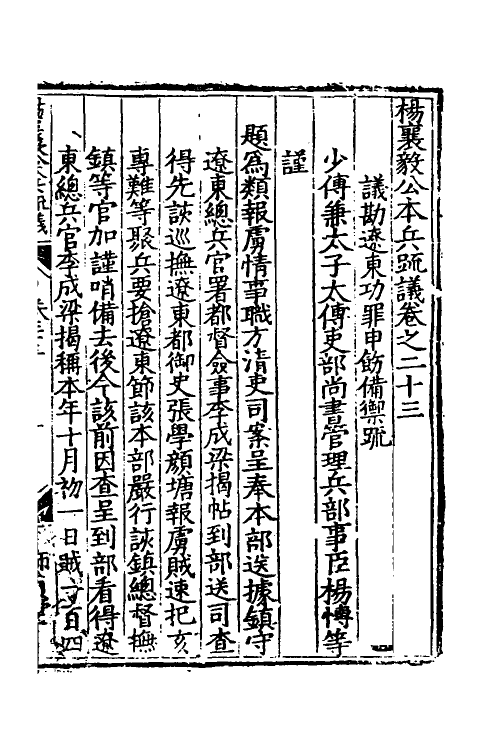 楊襄毅公本兵䟽議卷之二十三
議勘遼東功罪申飭備禦䟽
少傅兼太子太傅吏部尚書管理兵部事臣楊博等
謹
題為類報虜情事職方清吏司案呈奉本部送據鎮守
遼東總兵官署都督僉事李成梁揭帖到部送司查
得先該巡撫遼東都御史張學顏塘報虜賊速把亥
專難等聚兵要搶遼東節該本部嚴行該鎮總督撫
鎮等官加謹哨備去後今該前因查呈到部看得遼
東總兵官李成梁揭稱本年十月初一日賊一百四